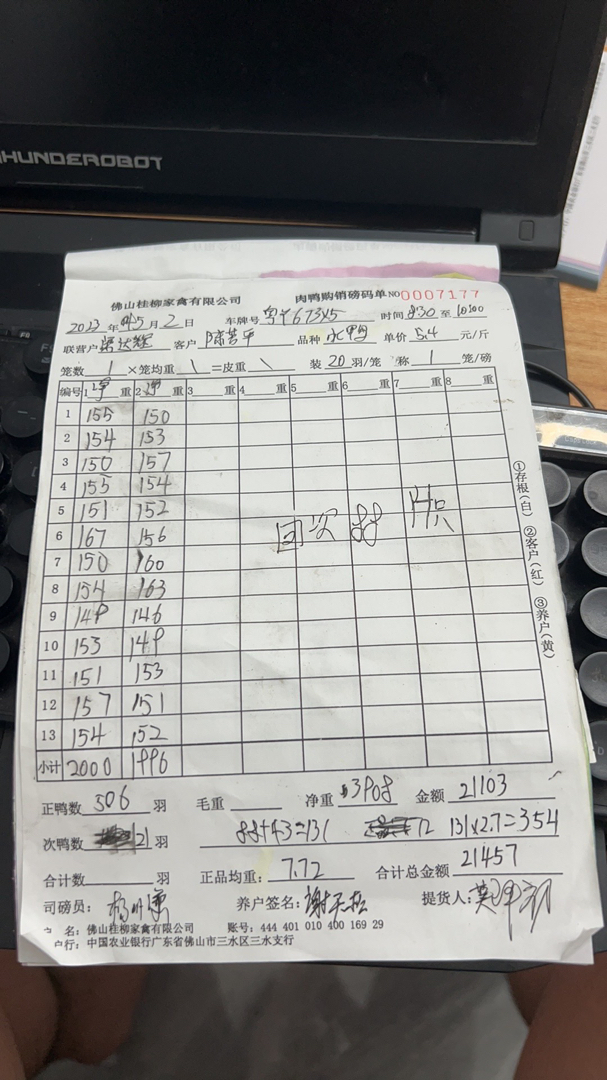 THUNDEROBOT
佛山桂柳家禽有限公司 肉鸭购销磅码单 NO 0007177
2023 年 5 月 2 日 车牌号 时间 8:30 至 10:00
联营户 客户 品种 水鸭 单价 5.4 元/斤
笼数 1 ×笼均重 \ =皮重 \ 装 20 羽/笼 称 1 笼/磅
编号 1 净 重 2 净 重 3 重 4 重 5 重 6 重 7 重 8 重
1 155 150
2 154 153
3 150 157
4 155 154
5 151 152
6 167 156
7 150 160
8 154 163
9 149 146
10 153 149
11 151 153
12 157 151
13 154 152
小计 2000 1996
回次 88
①存根(白) ②客户(红) ③养户(黄)
正鸭数 506 羽 毛重 净重 3908 金额 21103
次鸭数 21 羽 88+43=131 12 131×2.7=354
合计数 羽 正品均重: 7.72 合计总金额 21457
司磅员: 养户签名: 提货人:
名: 佛山桂柳家禽有限公司 账号: 444 401 010 400 169 29
户行: 中国农业银行广东省佛山市三水区三水支行